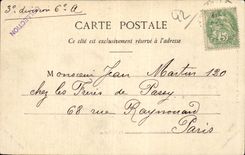 3e division 6e A
42
CARTE POSTALE
Ce côté est exclusivement réservé à l'adresse
Monsieur Jean Martin 120
chez les Frères de Passy
68 rue Raynouard
Paris